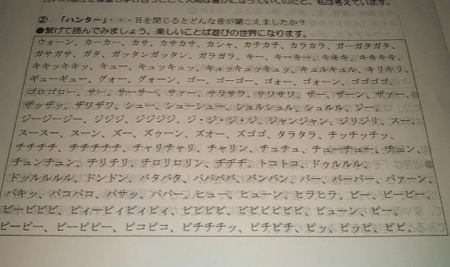 ②・「ハンター」・・・目を閉じるとどんな音が聞こえましたか?
●繋げて読んでみましょう。楽しいことば遊びの世界になります。
ウォーン、カーカー、カサ、カサカサ、カシャ、カチカチ、カラカラ、ガーガタガタ、
ガサガサ、ガタ、ガッタンガッタン、ガラガラ、キー、キーキィ、キキキ、キキキキ、
キキッキキッ、キュー、キュッキュッ、キュッキュッキュッ、キュルキュル、キリキリ、
ギューギュー、グォー、グォーン、ゴー、ゴーゴー、ゴォー、ゴォーン、ゴゴゴゴ、
ゴロゴロー、サー、サーサー、サァー、サラサラ、サワサワ、ザー、ザーン、ザァー、
ザッザッ、ザワザワ、シュー、シューシュー、シュルシュル、シュルル、ジー、
ジージージー、ジジジ、ジジジジ、ジ・ジ・ジ・ジ、ジャンジャン、ジリジリ、スー、
スースー、スーン、ズー、ズゥーン、ズオー、ズゴゴ、タラタラ、チッチッチッ、
チチチチ、チチチチチ、チャリチャリ、チャリン、チュチュ、チューチュー、チュン、
チュンチュン、チリチリ、チロリロリン、ヂヂヂ、トコトコ、ドゥルルル、
ドッルルルル、ドンドン、バタバタ、バババババ、バンバン、パー、パーパー、パアーン、
バキッ、パコパコ、バサッ、パパー、ヒュー、ヒューン、ヒラヒラ、ピー、ピーピー、
ピービビビ、ピィーピィピィピィ、ビビビビ、ビビビビビビ、ビューン、ビー、
ビービー、ビービビー、ピコピコ、ピチチチッ、ピチピチ、ピッ、ピッピ、ピピ、